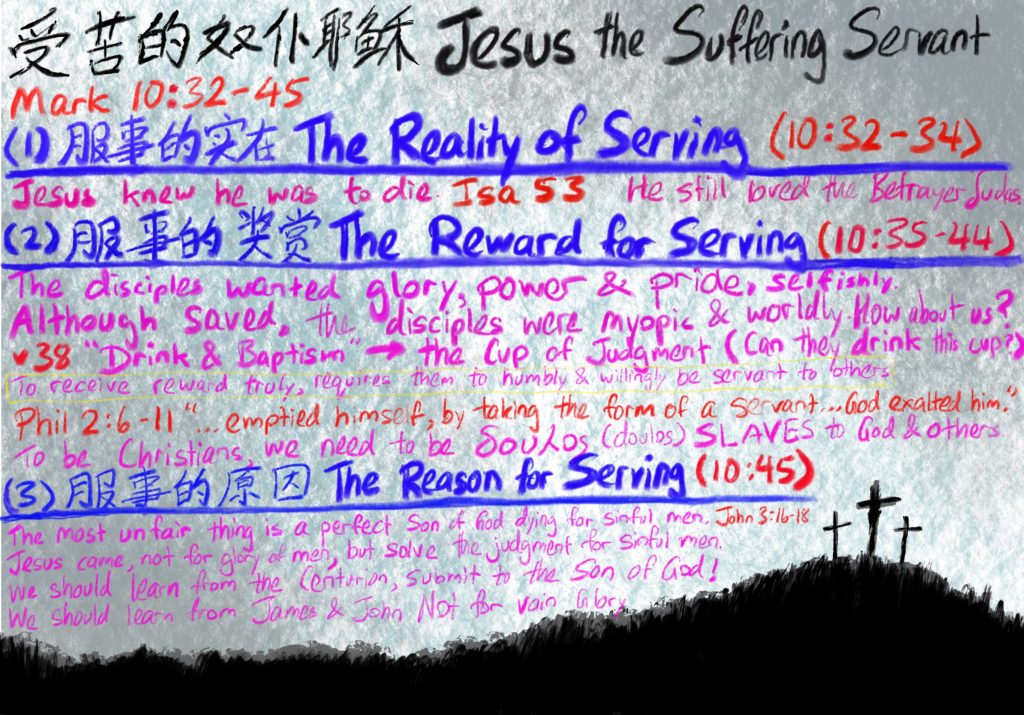 受苦的奴仆耶稣 Jesus the Suffering Servant
Mark 10:32-45
(1) 服事的实在 The Reality of Serving (10:32-34)
Jesus knew he was to die. Isa 53 He still loved the Betrayer Judas.
(2) 服事的奖赏 The Reward for Serving (10:35-44)
The disciples wanted glory, power & pride, selfishly.
Although saved, the disciples were myopic & worldly. How about us?
v38 "Drink & Baptism" → the Cup of Judgment (Can they drink this cup?)
To receive reward truly, requires them to humbly & willingly be servant to others
Phil 2:6-11 "...emptied himself, by taking the form of a servant...God exalted him."
To be Christians, we need to be δουλος (doulos) SLAVES to God & others.
(3) 服事的原因 The Reason for Serving (10:45)
The most unfair thing is a perfect Son of God dying for sinful men. John 3:16-18
Jesus came, not for glory of men, but solve the judgment for sinful men.
We should learn from the Centurion, submit to the Son of God!
We should learn from James & John Not for vain Glory